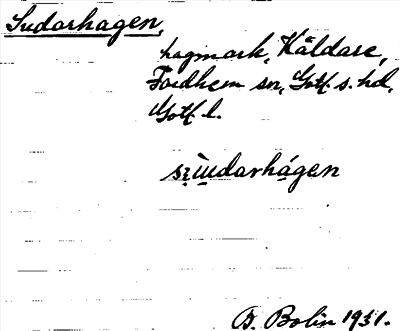 Sudarhagen,
hagmark, Kåldare,
Fardhem sn, Gotl. s. hd,
Gotl. l.
sùdarhágen
B. Bolin 1931.